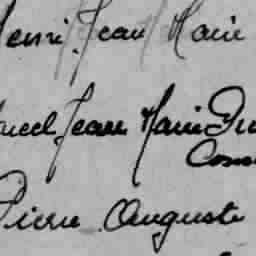 Henri Jean Marie
Marcel Jean Marie
Pierre Auguste